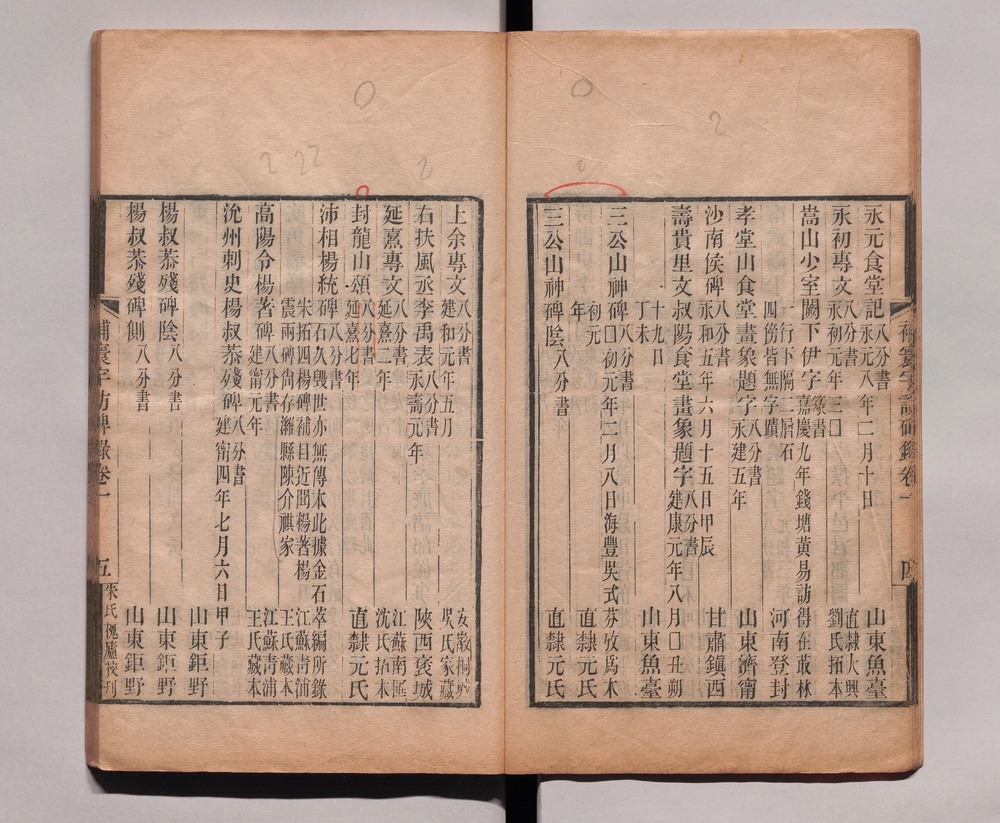 永元食堂記 八分書 永元八年二月十日 山東魚臺
永初專文 八分書 永初元年三□ 直隸大興 劉氏拓本
嵩山少室闕下伊字 篆書 嘉慶九年錢塘黃易訪得在敢林
一行下隔二層石
四傍皆無字蹟 河南登封
孝堂山食堂畫象題字 八分書 永建五年 山東濟甯
沙南侯碑 八分書 永和五年六月十五日甲辰 甘肅鎮西
壽貴里文叔陽食堂畫象題字 八分書 建康元年八月□丑朔
十九日
丁未 山東魚臺
三公山神碑 八分書 □初元年二月八日海豐吳式芬攷為本
初元
年 直隸元氏
三公山神碑陰 八分書 直隸元氏
補寰宇訪碑錄卷一 四
上余專文 八分書 建和元年五月 安徽桐城 吳氏家藏
右扶風丞李禹表 八分書 永壽元年 陝西褒城
延熹專文 八分書 延熹二年 江蘇南匯 沈氏拓本
封龍山頌 八分書 延熹七年 直隸元氏
沛相楊統碑 八分書 石久毀世亦無傳本此據金石萃編所錄
朱拓四楊碑補目近聞楊著楊 江蘇青浦
震兩碑尚存濰縣陳介祺家 王氏藏本
高陽令楊著碑 八分書 建甯元年 江蘇青浦 王氏藏本
沇州刺史楊叔恭殘碑 八分書 建甯四年七月六日甲子
山東鉅野
楊叔恭殘碑陰 八分書 山東鉅野
楊叔恭殘碑側 八分書 山東鉅野
補寰宇訪碑錄卷一 五 朱氏槐廬校刊